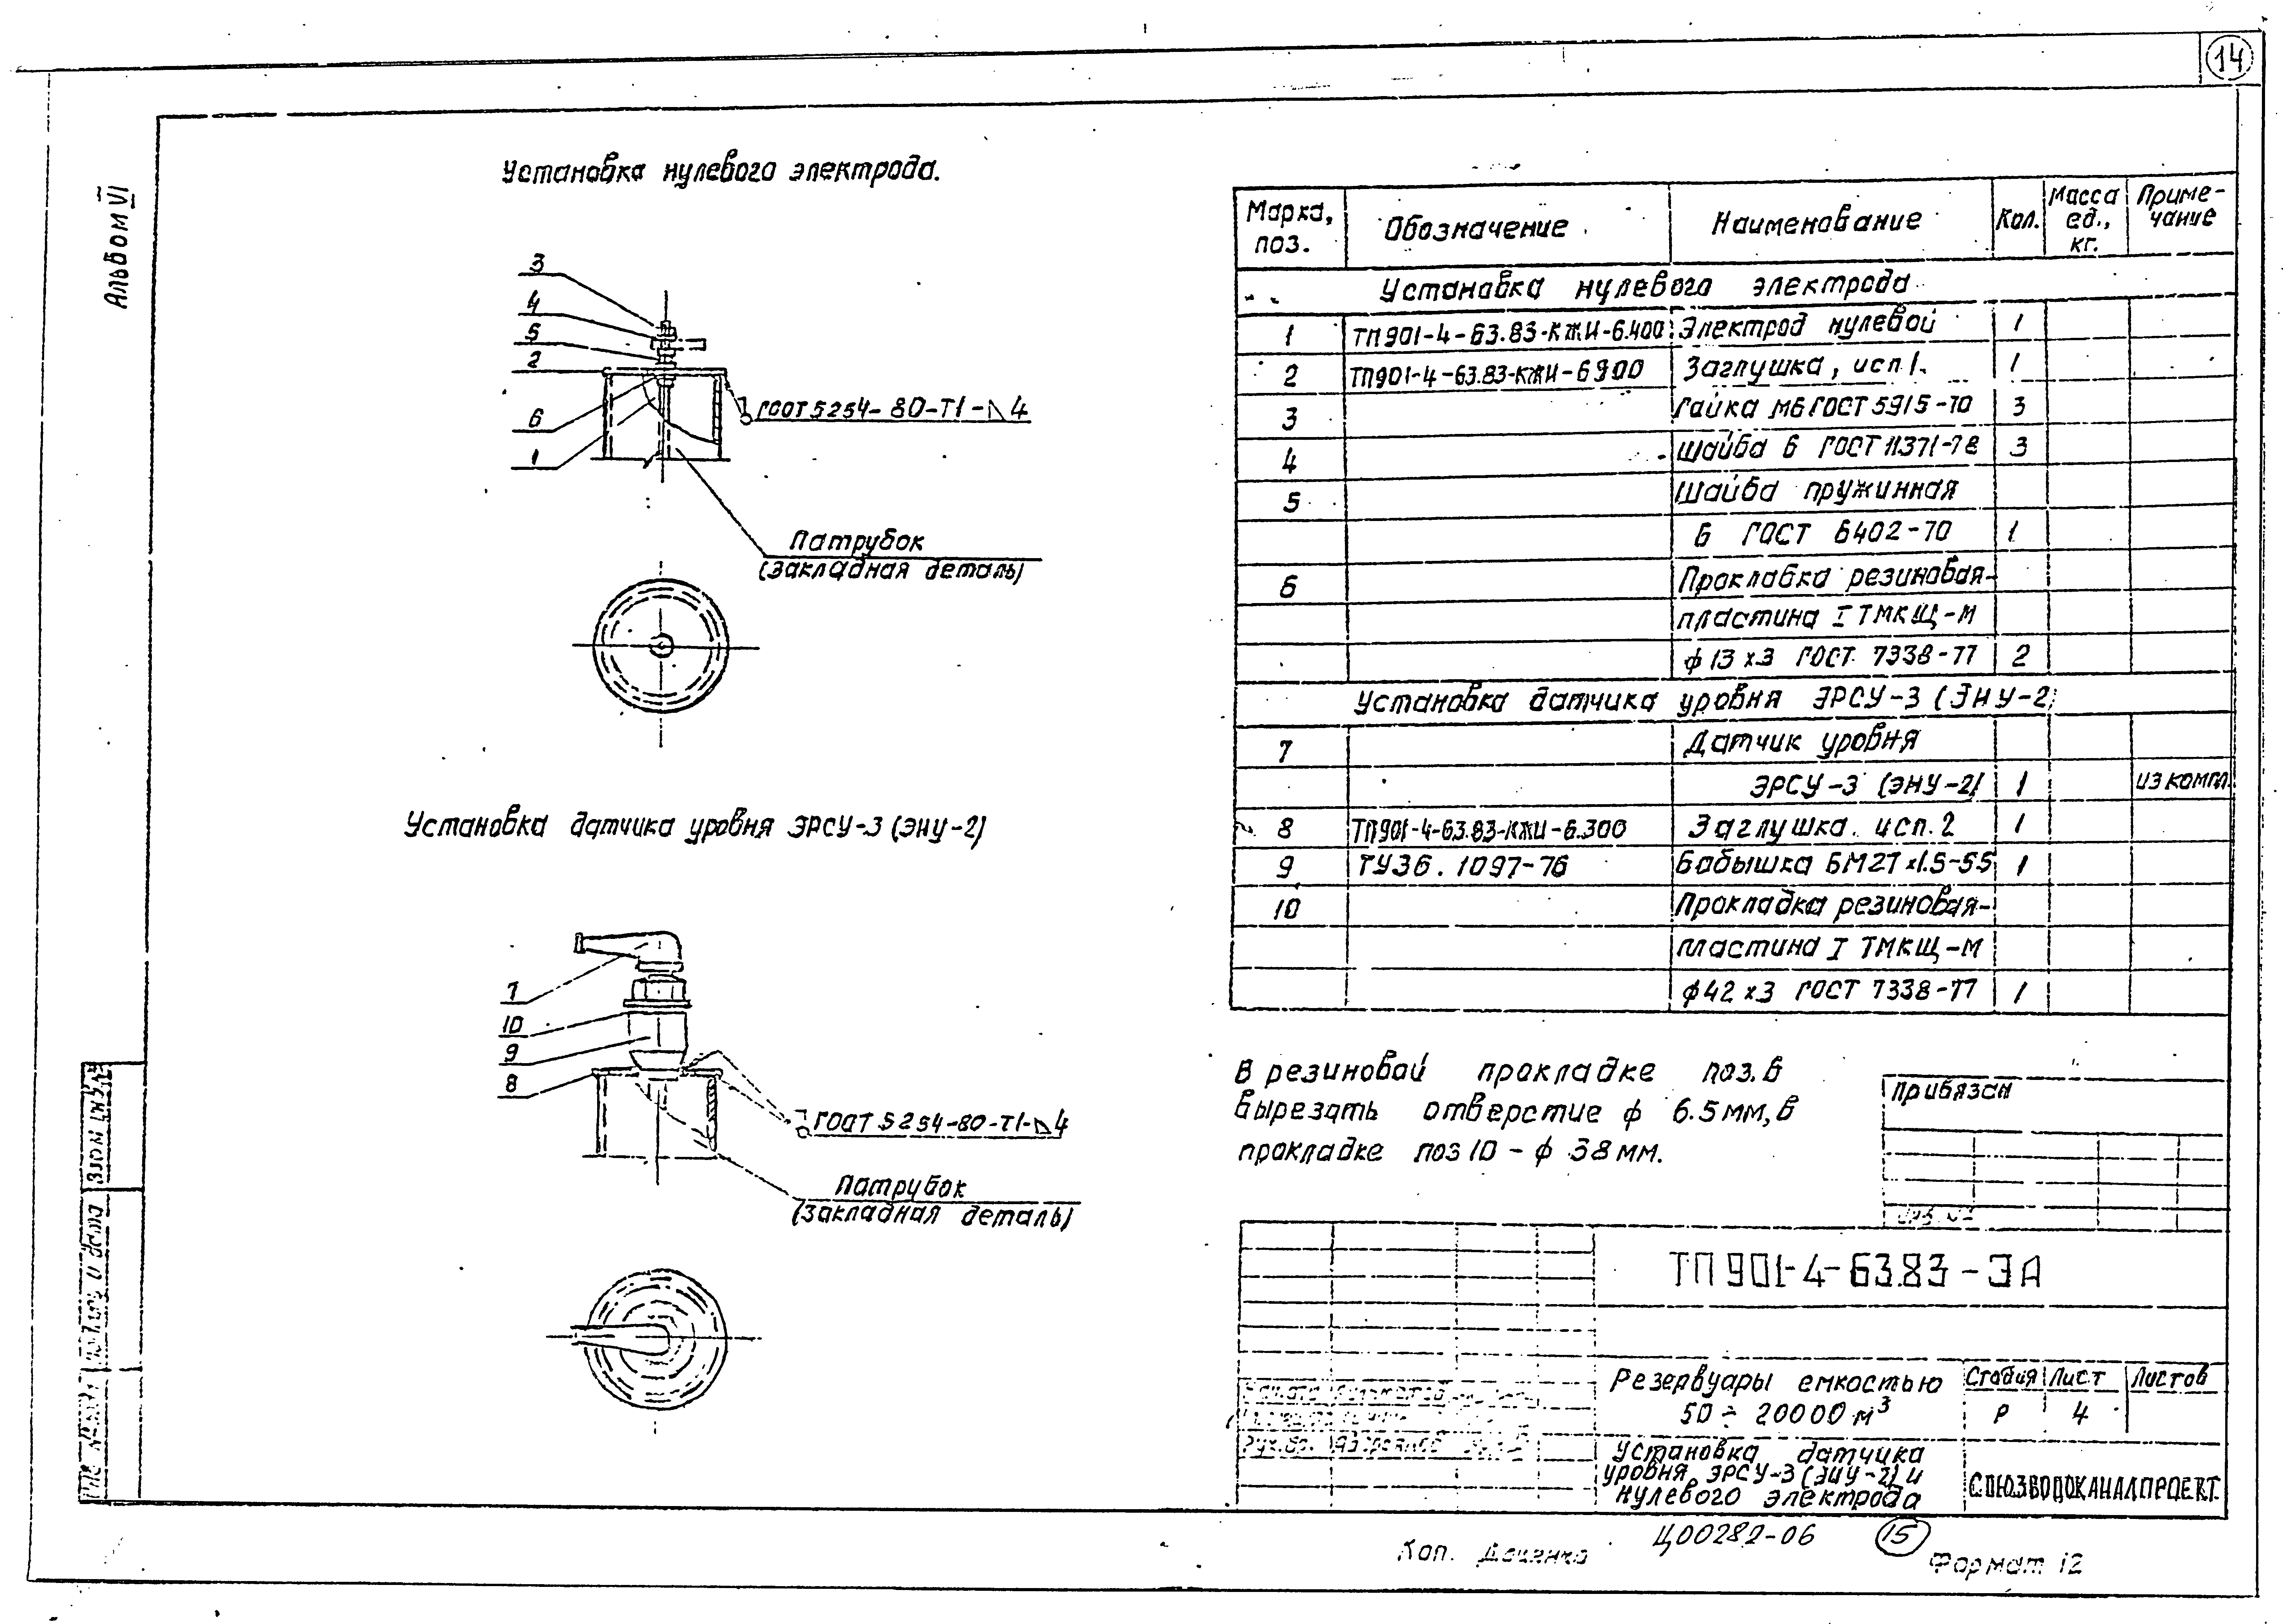 14
Альбом VI
Установка нулевого электрода.
3
4
5
2
6
1
ГОСТ 5254-80-Т1-⊿4
Патрубок
(закладная деталь)
Установка датчика уровня ЭРСУ-3 (ЭНУ-2)
7
10
9
8
ГОСТ 5254-80-Т1-⊿4
Патрубок
(закладная деталь)
Марка, поз. Обозначение Наименование Кол. Масса ед., кг. Приме-чание
Установка нулевого электрода
1 ТП901-4-63.83-КЖИ-6.400 Электрод нулевой 1
2 ТП901-4-63.83-КЖИ-6300 Заглушка, исп 1. 1
3 Гайка М6 ГОСТ 5915-70 3
4 Шайба 6 ГОСТ 11371-78 3
5 Шайба пружинная
6 ГОСТ 6402-70 1
6 Прокладка резиновая-
пластина I ТМКЩ-М
ф 13 х 3 ГОСТ 7338-77 2
Установка датчика уровня ЭРСУ-3 (ЭНУ-2)
7 Датчик уровня
ЭРСУ-3 (ЭНУ-2) 1 из компл.
8 ТП901-4-63.83-КЖИ-6.300 Заглушка. исп. 2 1
9 ТУ36.1097-76 Бобышка БМ27х1.5-55 1
10 Прокладка резиновая-
пластина I ТМКЩ-М
ф42 х3 ГОСТ 7338-77 1
В резиновой прокладке поз. 6
вырезать отверстие ф 6.5 мм, в
прокладке поз 10 - ф 38 мм.
Привязан
Инв. №
ТП 901-4-63.83-ЭА
Резервуары емкостью
50 ÷ 20000 м³
Стадия Лист Листов
Р 4
Установка датчика
уровня ЭРСУ-3 (ЭНУ-2) и
нулевого электрода
СОЮЗВОДОКАНАЛПРОЕКТ.
Инв. № подл. Подпись и дата Взам. инв. №
Коп. Доценко
Ц00282-06
15
Формат 12